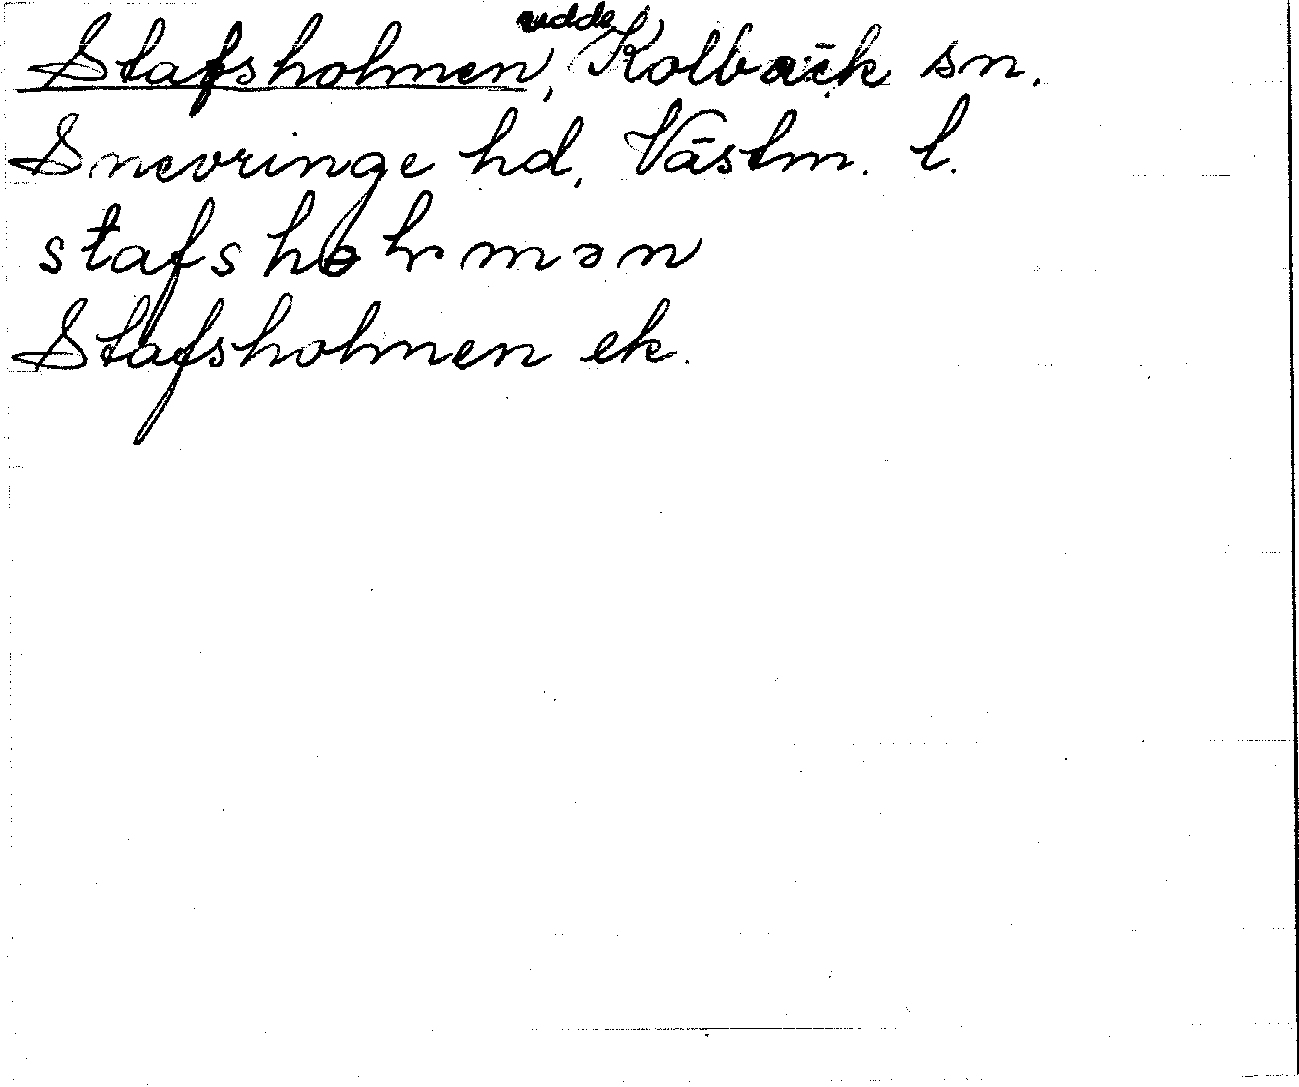 Stafsholmen, udde Kolbäck sn.
Snevringe hd, Västm. l.
Stafsholmen ek.